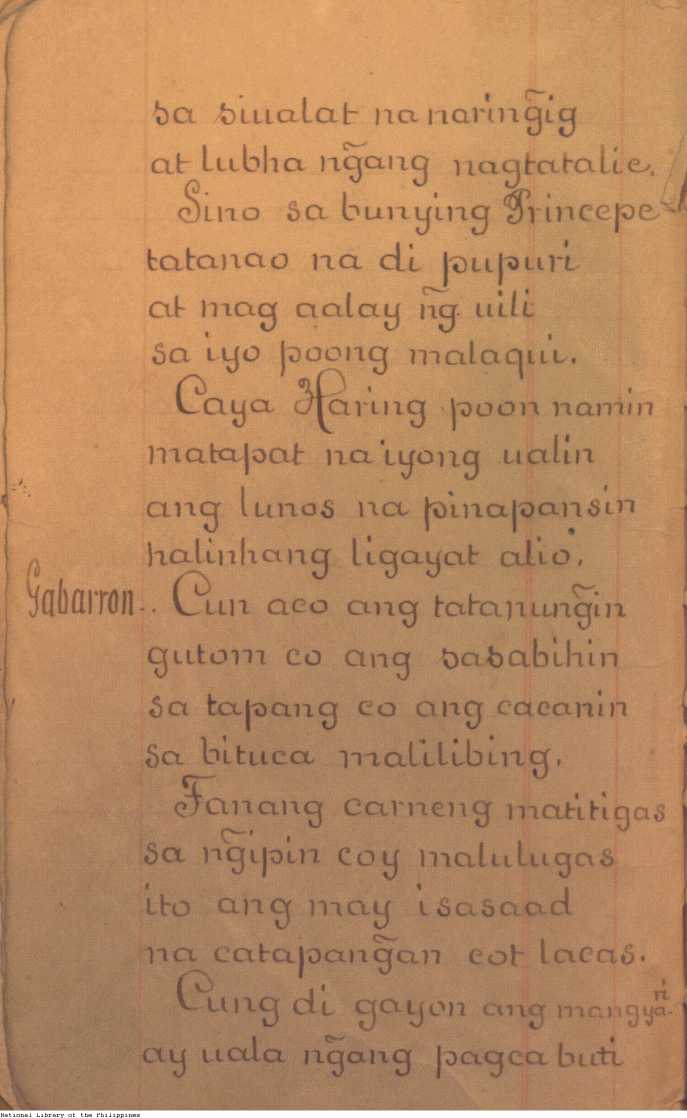 sa siualat na naring̃ig
at lubha ng̃ang nagtatalic.
Sino sa bunying Princepe
tatanao na di pupuri
at mag aalay ng̃ uili
sa iyo poong malaqui.
Caya Haring poon namin
matapat na iyong ualin
ang lunos na pinapansin
halinhang ligayat alio.
Gabarron.. Cun aco ang tatanung̃in
gutom co ang sasabihin
sa tapang co ang cacanin
sa bituca malilibing.
Tanang carneng matitigas
sa ng̃ipin coy malulugas
ito ang may isasaad
na catapang̃an cot lacas.
Cung di gayon ang mangyari
ay uala ng̃ang pagca buti
National Library of the Philippines